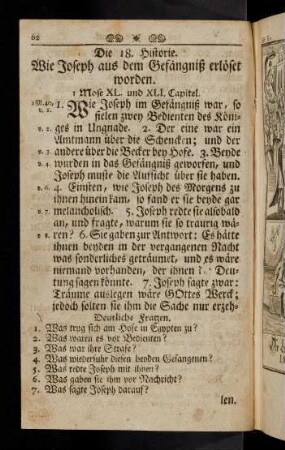 62
Die 18. Historie.
Wie Joseph aus dem Gefängniß erlöset
worden.
1 Mose XL. und XLI. Capitel.
1. Wie Joseph im Gefängniß war, so
v. 2. fielen zwey Bedienten des Köni-
ges in Ungnade. 2. Der eine war ein
Amtmann über die Schencken; und der
v. 3. andere über die Becker bey Hofe. 3. Beyde
v. 4. wurden in das Gefängniß geworfen, und
Joseph muste die Aufsicht über sie haben.
v. 6. 4. Einsten, wie Joseph des Morgens zu
ihnen hinein kam, so fand er sie beyde gar
v. 7. melancholisch. 5. Joseph redte sie alsobald
an, und fragte, warum sie so traurig wä-
v. 8. ren? 6. Sie gaben zur Antwort: Es hätte
ihnen beyden in der vergangenen Nacht
was sonderliches geträumet, und es wäre
niemand vorhanden, der ihnen Deu-
tung sagen könnte. 7. Joseph sagte zwar:
Träume auslegen wäre GOttes Werck;
jedoch solten sie ihm die Sache nur erzeh-
Deutliche Fragen.
1. Was trug sich am Hofe in Egypten zu?
2. Was waren es vor Bedienten?
3. Was war ihre Strafe?
4. Was wiederfuhr diesen beyden Gefangenen?
5. Was redte Joseph mit ihnen?
6. Was gaben sie ihm vor Nachricht?
7. Was sagte Joseph darauf?
len.